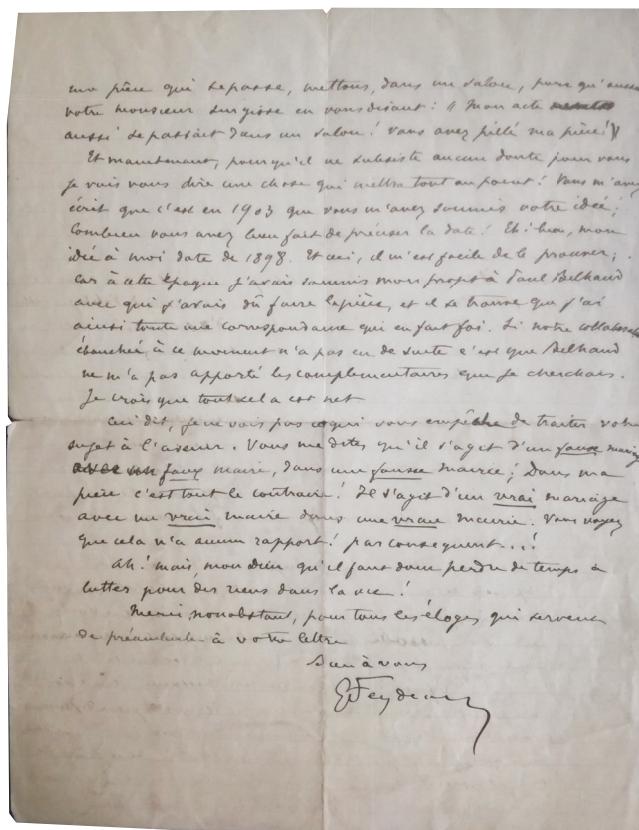 ma pièce qui se passe, mettons, dans un salon, pour qu'aussi
votre monsieur surgisse en vous disant : "Mon acte
aussi se passait dans un salon ! Vous avez pillé ma pièce !"
Et maintenant, pour qu'il ne subsiste aucun doute pour vous
je vais vous dire une chose qui mettra tout au point ! Vous m'avez
écrit que c'est en 1903 que vous m'avez soumis votre idée ;
Combien vous avez bien fait de préciser la date ! Eh ! bien, mon
idée à moi date de 1898. Et ceci, il m'est facile de le prouver ;
car à cette époque j'avais soumis mon projet à Paul Bilhaud
avec qui j'avais dû faire la pièce, et il se trouve que j'ai
ainsi toute une correspondance qui en fait foi. Si notre collaboration
ébauchée à ce moment n'a pas eu de suite c'est que Bilhaud
ne m'a pas apporté les complémentaires que je cherchais.
Je crois que tout cela est net
Ceci dit, je ne vois pas ce qui vous empêche de traiter votre
sujet à l'avenir. Vous me dites qu'il s'agit d'un faux mariage
avec un faux maire, dans une fausse mairie ; Dans ma
pièce c'est tout le contraire ! Il s'agit d'un vrai mariage
avec un vrai maire dans une vraie mairie. Vous voyez
que cela n'a aucun rapport ! par conséquent...!
Ah ! mais mon dieu qu'il faut donc perdre de temps à
lutter pour des riens dans la vie !
Merci nonobstant, pour tous les éloges qui servent
de préambule à votre lettre
Bien à vous
G Feydeau